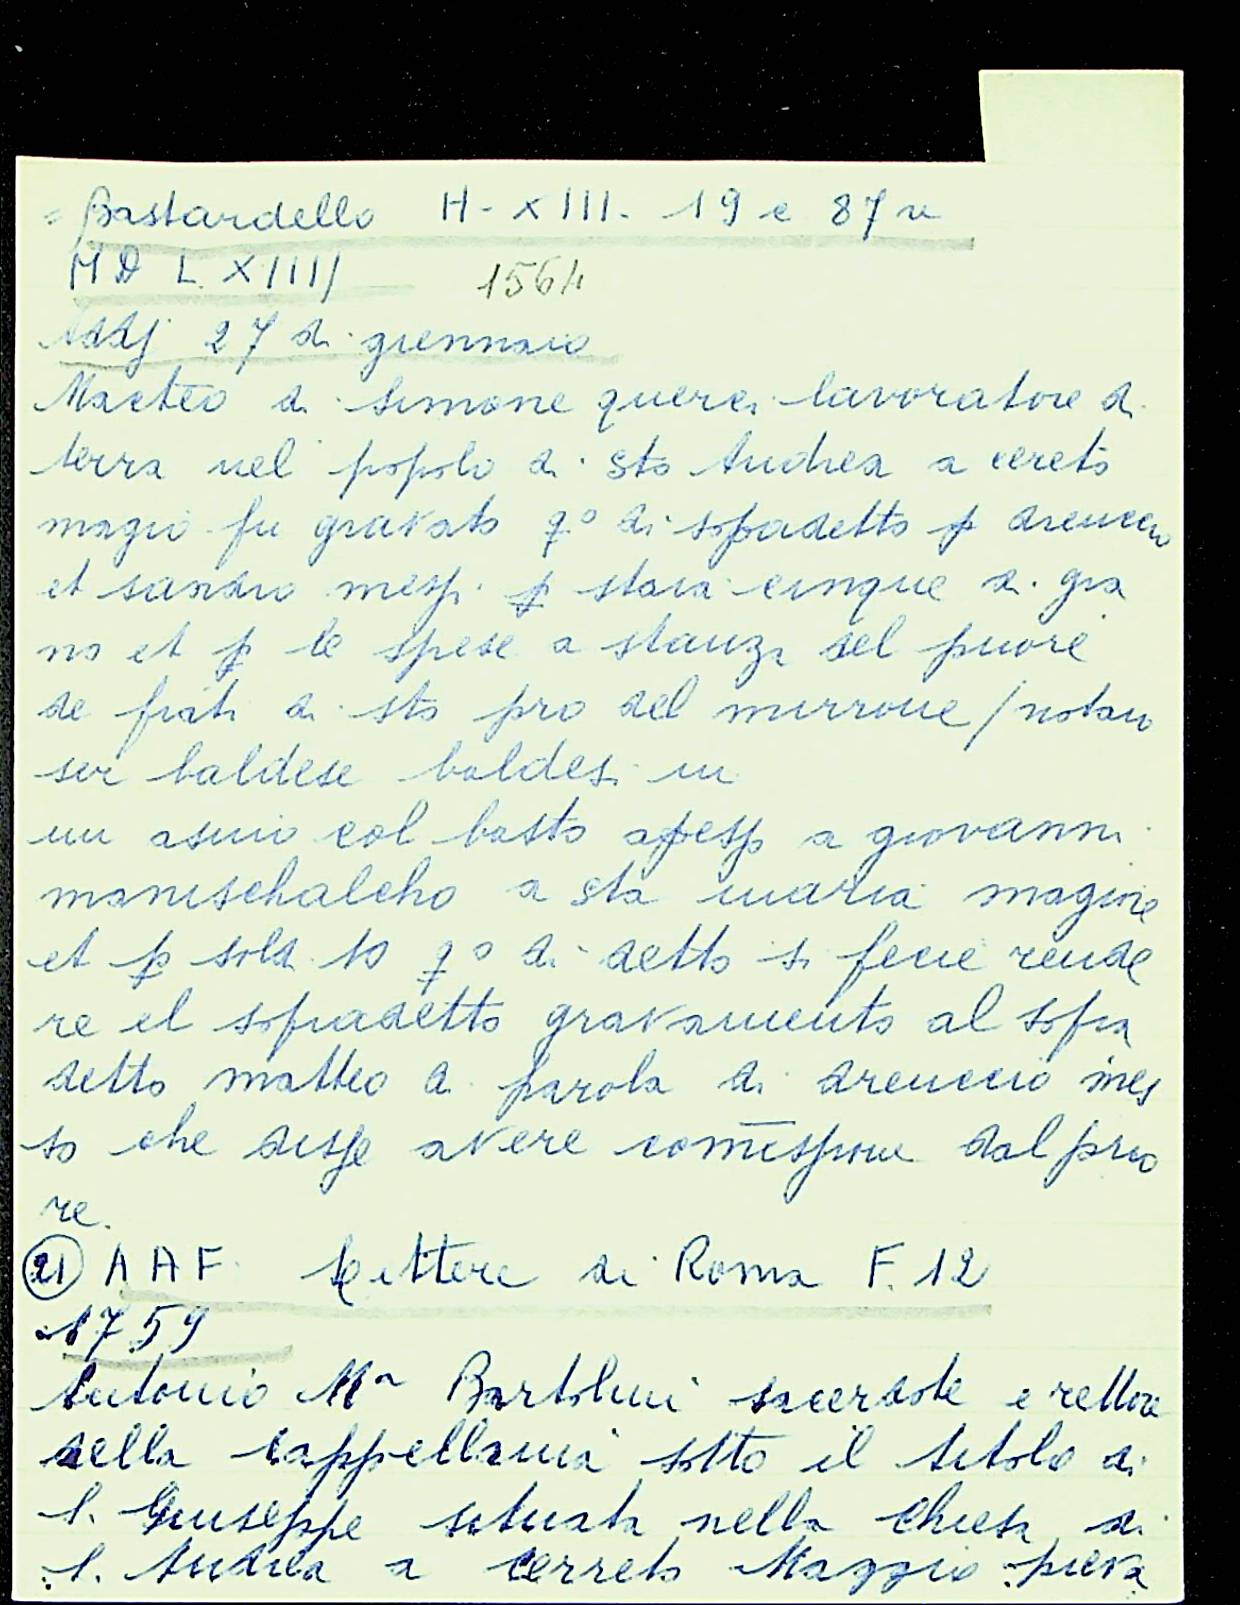 Bastardello H-XIII- 19 e 87 v
MD L XIIII 1564
Addj 27 di giennaio
Macteo di simone querci lavoratore di
terra nel popolo di sto Andrea a cereto
magio fu gravato qo di sopradetto p dreuccio
et sandro messi p staia cinque di gra
no et p le spese a stanza del priore
de frati di sto pro del murrone / notaio
ser baldese baldesi in
un asino col basto apesso a giovanni
manischalcho a sta maria magiore
et p soldi 10 qo di detto si fecie rende
re el sopradetto gravamento al sopra
detto matteo di parola di dreuccio mes
so che disse avere comissione dal prio
re.
21 A A F. Lettere di Roma F. 12
1759
Antonio Ma Bartolini sacerdote e rettore
della cappellania sotto il titolo di
S. Giuseppe situata nella Chiesa di
S. Andrea a Cerreto Maggio pieva